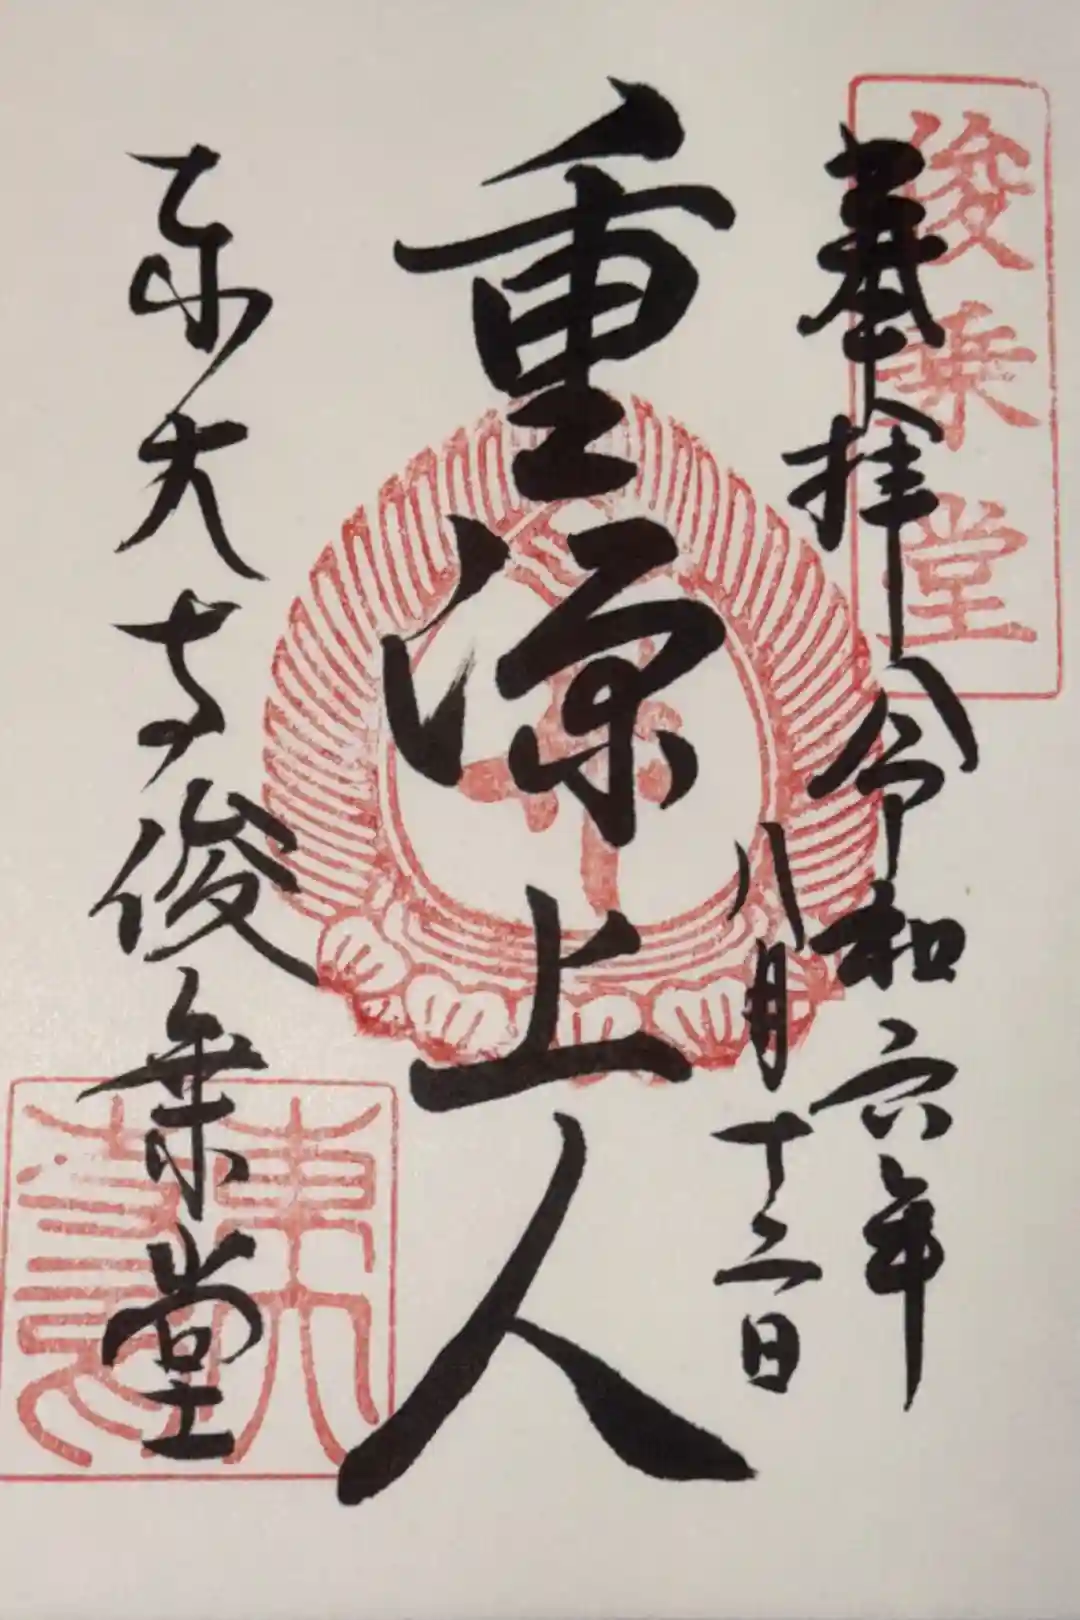 俊乗堂
奉拝
令和六年
八月十二日
重源上人
東大寺俊乗堂